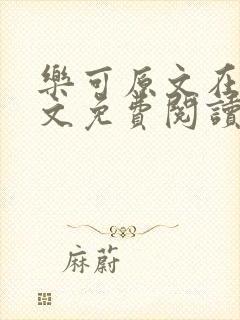 樂可原文在
文免費閱讀
麻蔚